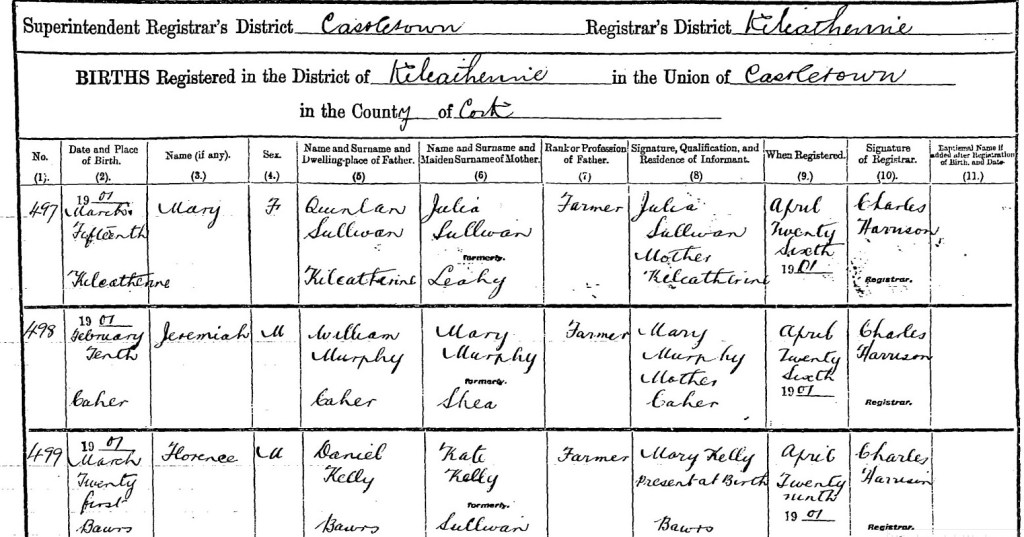 Superintendent Registrar's District Castletown Registrar's District Kilcathennie
BIRTHS Registered in the District of Kilcathennie in the Union of Castletown
in the County of Cork
No. Date and Place of Birth. Name (if any). Sex. Name and Surname and Dwelling-place of Father. Name and Surname and Maiden Surname of Mother. Rank or Profession of Father. Signature, Qualification, and Residence of Informant. When Registered. Signature of Registrar. Baptismal Name if added after Registration of Birth, and Date.
(1). (2). (3.) (4.) (5) (6) (7) (8) (9.) (10). (11.)
497 1901 Mary F Quinlan Julia Farmer Julia April Charles
March Sullivan Sullivan Sullivan Twenty Harrison
Fifteenth formerly Mother Sixth
Kilcatherine Kilcatherine Leahy Kilcatherine 1901 Registrar.
498 1901 Jeremiah M William Mary Farmer Mary April Charles
February Murphy Murphy Murphy Twenty Harrison
Tenth formerly Mother Sixth
Caher Caher Shea Caher 1901 Registrar.
499 1901 Florence M Daniel Kate Farmer Mary Kelly April Charles
March Kelly Kelly Present at Birth Twenty Harrison
Twenty formerly ninth
first
Bawrs Bawrs Sullivan Bawrs 1901 Registrar.